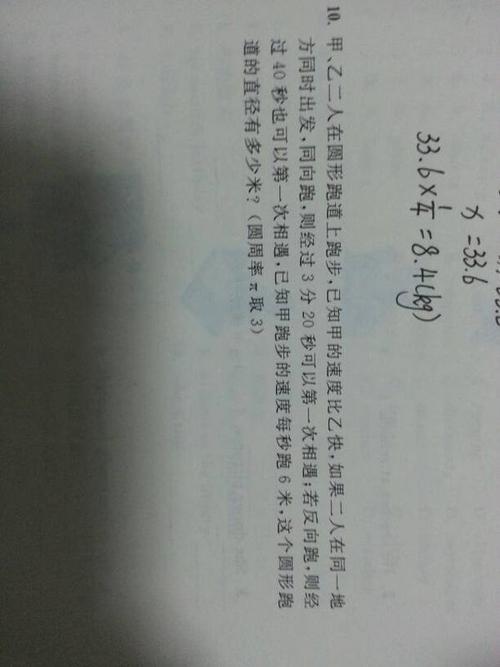 x = 33.6
33.6 × 1/4 = 8.4(kg)
10. 甲、乙二人在圆形跑道上跑步,已知甲的速度比乙快,如果二人在同一地
方同时出发,同向跑,则经过3分20秒可以第一次相遇;若反向跑,则经
过40秒也可以第一次相遇,已知甲跑步的速度每秒跑6米,这个圆形跑
道的直径有多少米?(圆周率π取3)